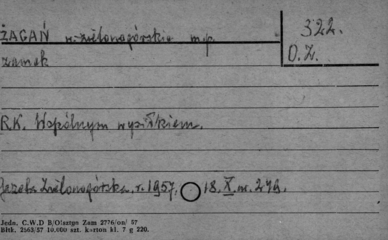 ŻAGAŃ w. zielonogórskie m.p. 322.
zamek O.Z.
R.K. Wspólnym wysiłkiem.
Gazeta Zielonogórska. r. 1957. 18. X. nr. 249.
Jedn. C.W.D B/Olsztyn Zam 2776/on/ 57
Bltk. 2563/57 10.000 szt. karton kl. 7 g 220.